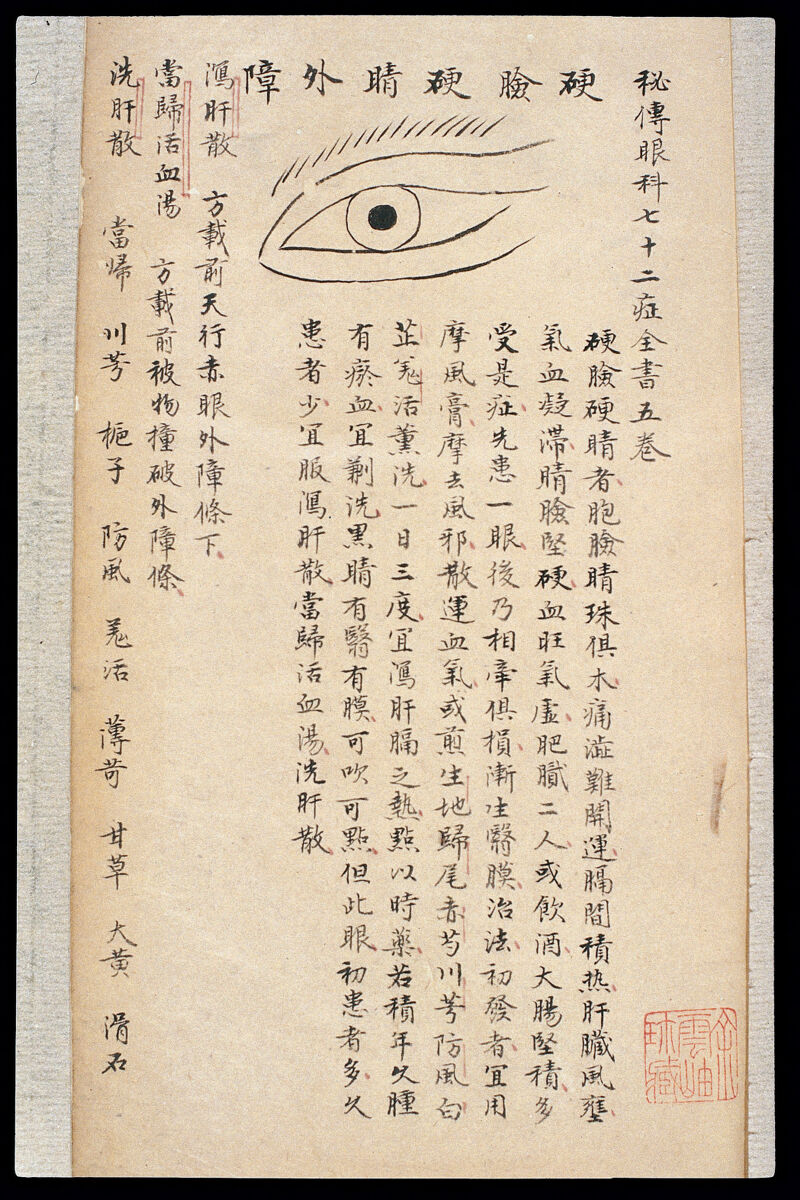 秘傳眼科七十二症全書五卷
硬瞼硬睛外障
硬瞼硬睛者胞瞼睛珠俱木痛澁難開運膈間積热肝臟風壅
氣血凝滯睛瞼堅硬血旺氣虛肥膩二人或飲酒大腸堅積多
受是症先患一眼後乃相牽俱損漸生瞖膜治法初發者宜用
摩風膏摩去風邪散運血氣或煎生地歸尾赤芍川芎防風白
芷羌活薰洗一日三度宜瀉肝膈之熱點以時藥若積年久腫
有瘀血宜劆洗黑睛有瞖有膜可吹可點但此眼初患者多久
患者少宜服瀉肝散當歸活血湯洗肝散
瀉肝散 方載前天行赤眼外障條下
當歸活血湯 方載前被物撞破外障條
洗肝散 當帰 川芎 梔子 防風 羌活 薄苛 甘草 大黃 滑石